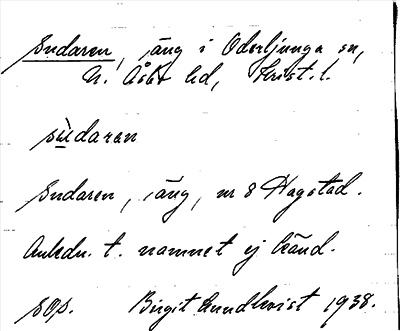 Sudaren, äng i Oderljunga sn,
N. Åsbo hd, Krist. l.
sùdaren
Sudaren, äng, nr 8 Hagstad.
Anledn. t. namnet ej känd.
sOp. Birgit Lundkvist 1938.